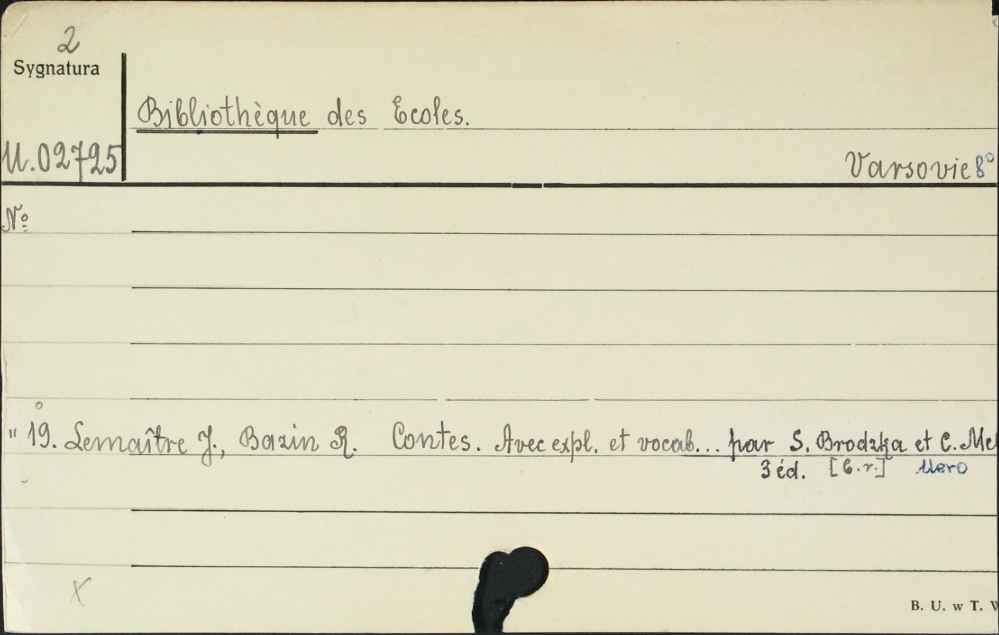 2
Sygnatura
Bibliothèque des Ecoles.
U.02725
Varsovie 8°
Nº
" 19. Lemaître J., Bazin R. Contes. Avec expl. et vocab... par S. Brodzka et C. Me
3 éd. [b.r.]
x
B. U. w T.